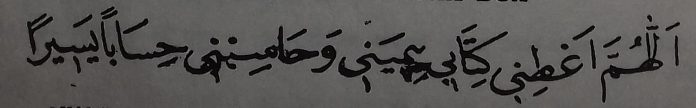 اَللّٰهُمَّ اَعْطِنِي كِتَابِي بِيَمِيْنِي وَحَاسِبْنِي حِسَابًا يَسِيْرًا